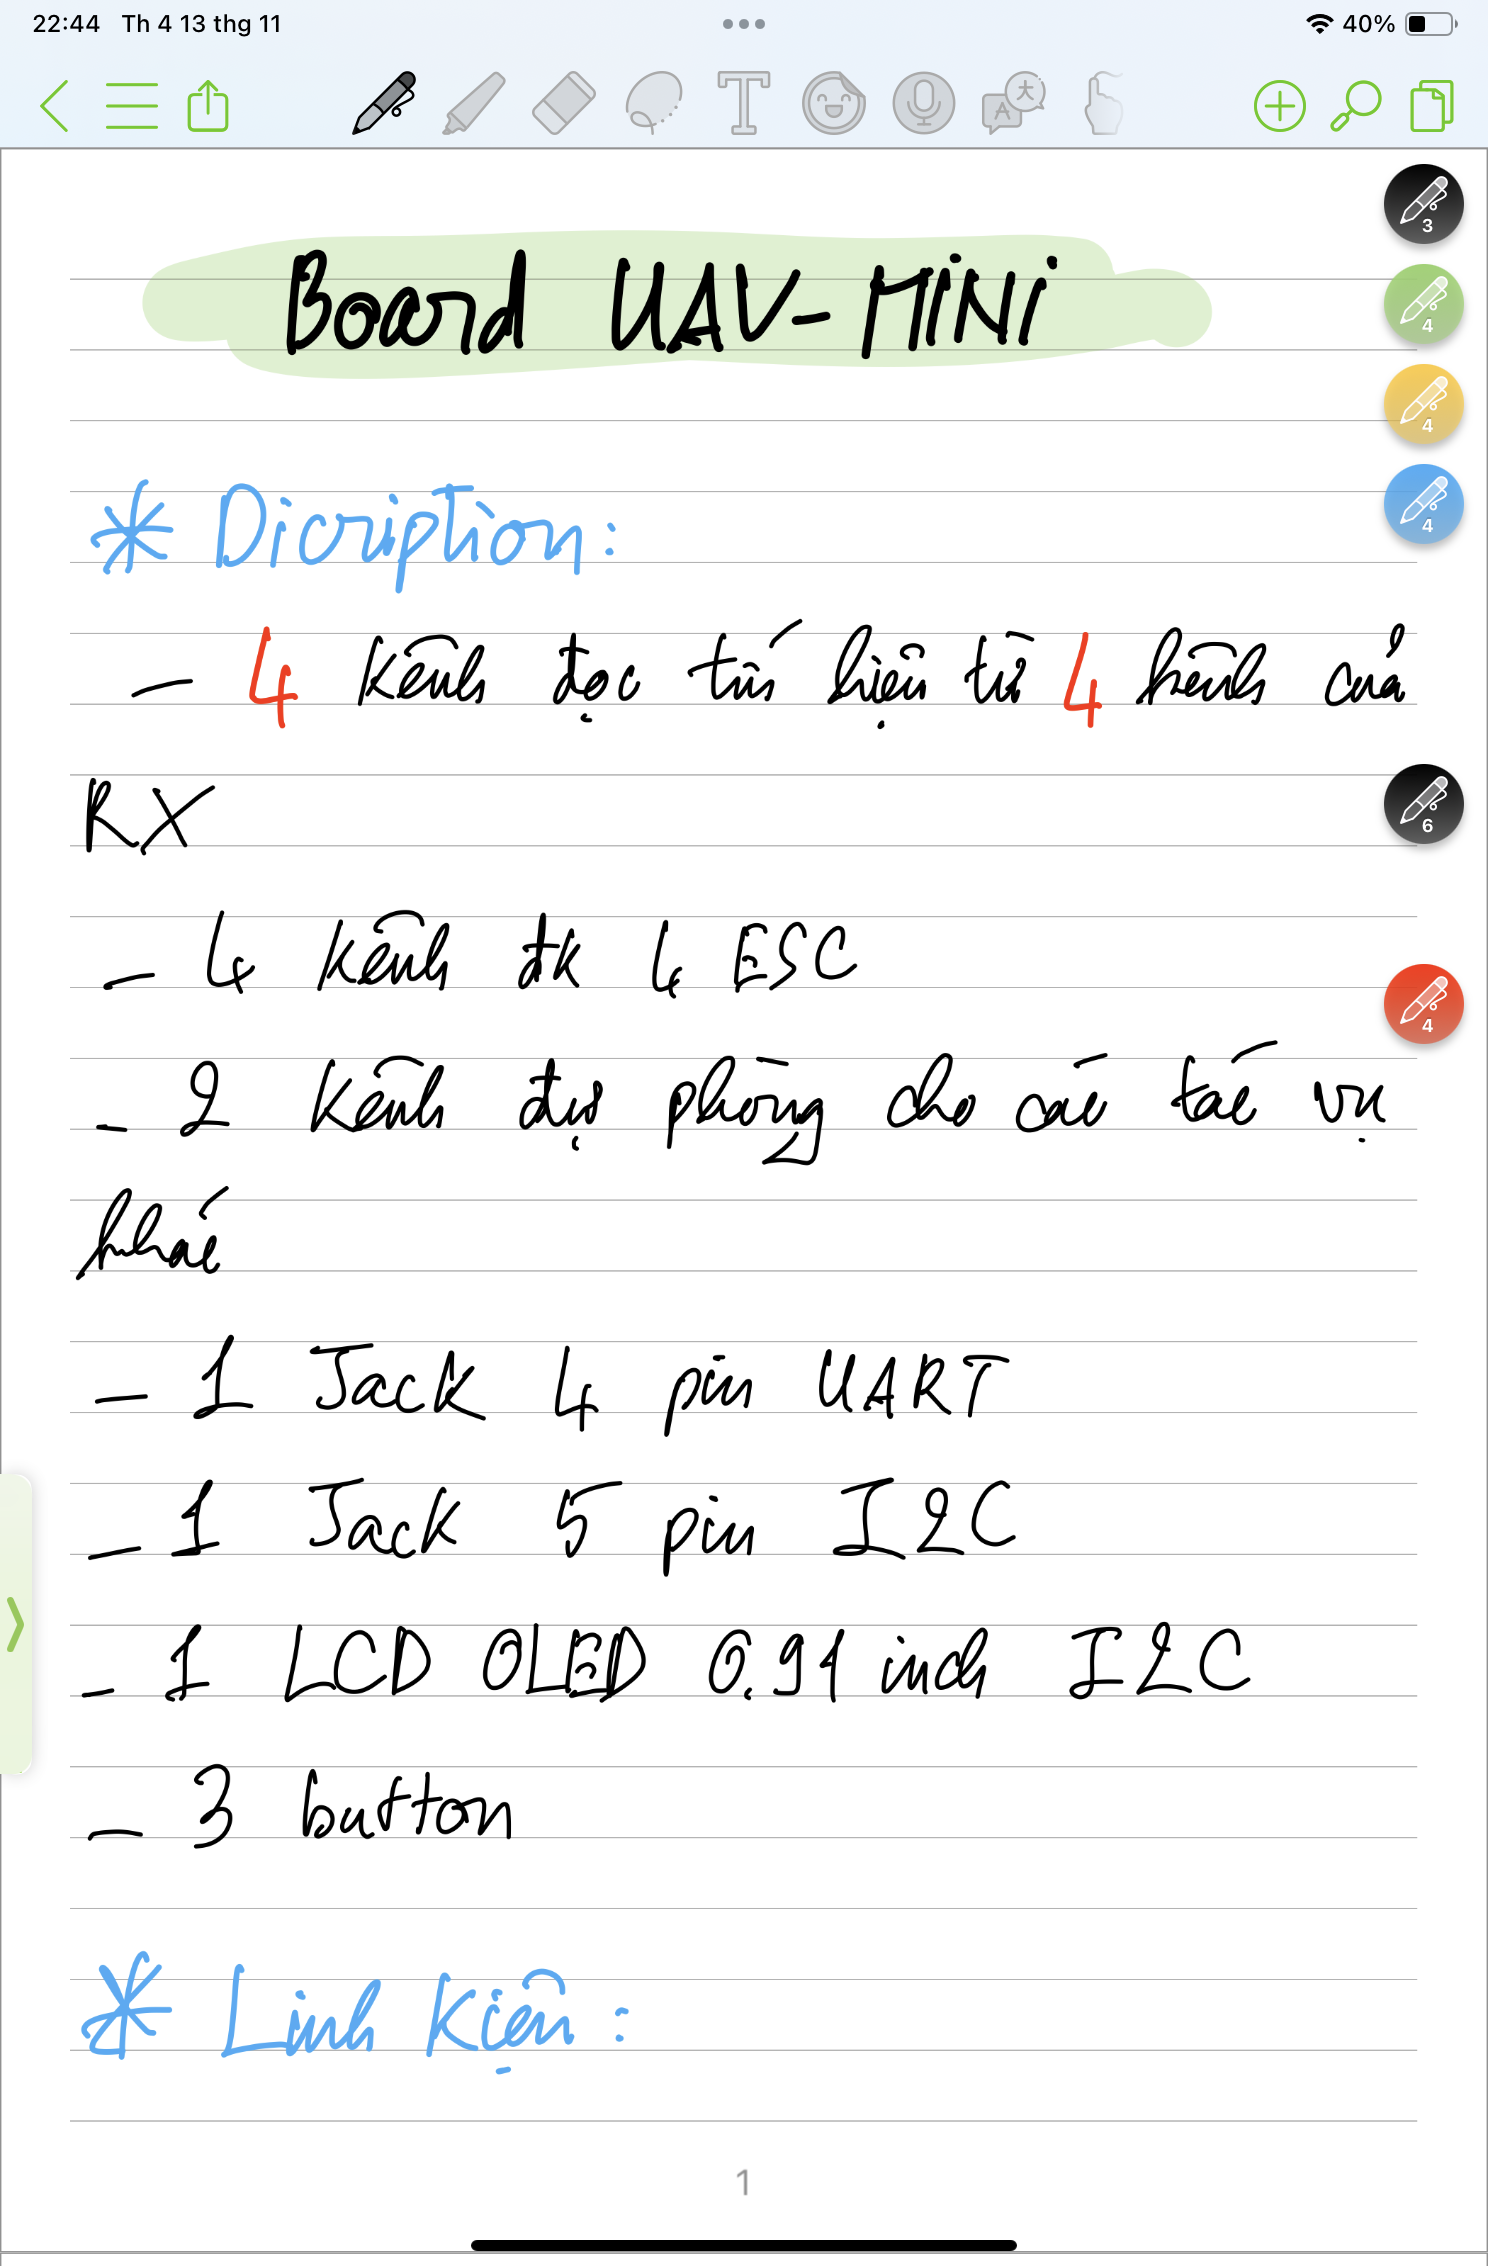 22:44 Th 4 13 thg 11 40%
Board UAV-MINI
* Dicription:
- 4 kênh đọc tín hiệu từ 4 kênh của
RX
- 4 kênh đk 4 ESC
- 2 kênh dự phòng cho các tác vụ
khác
- 1 Jack 4 pin UART
- 1 Jack 5 pin I2C
- 1 LCD OLED 0.91 inch I2C
- 3 button
* Linh kiện:
1
3
4
4
4
6
4